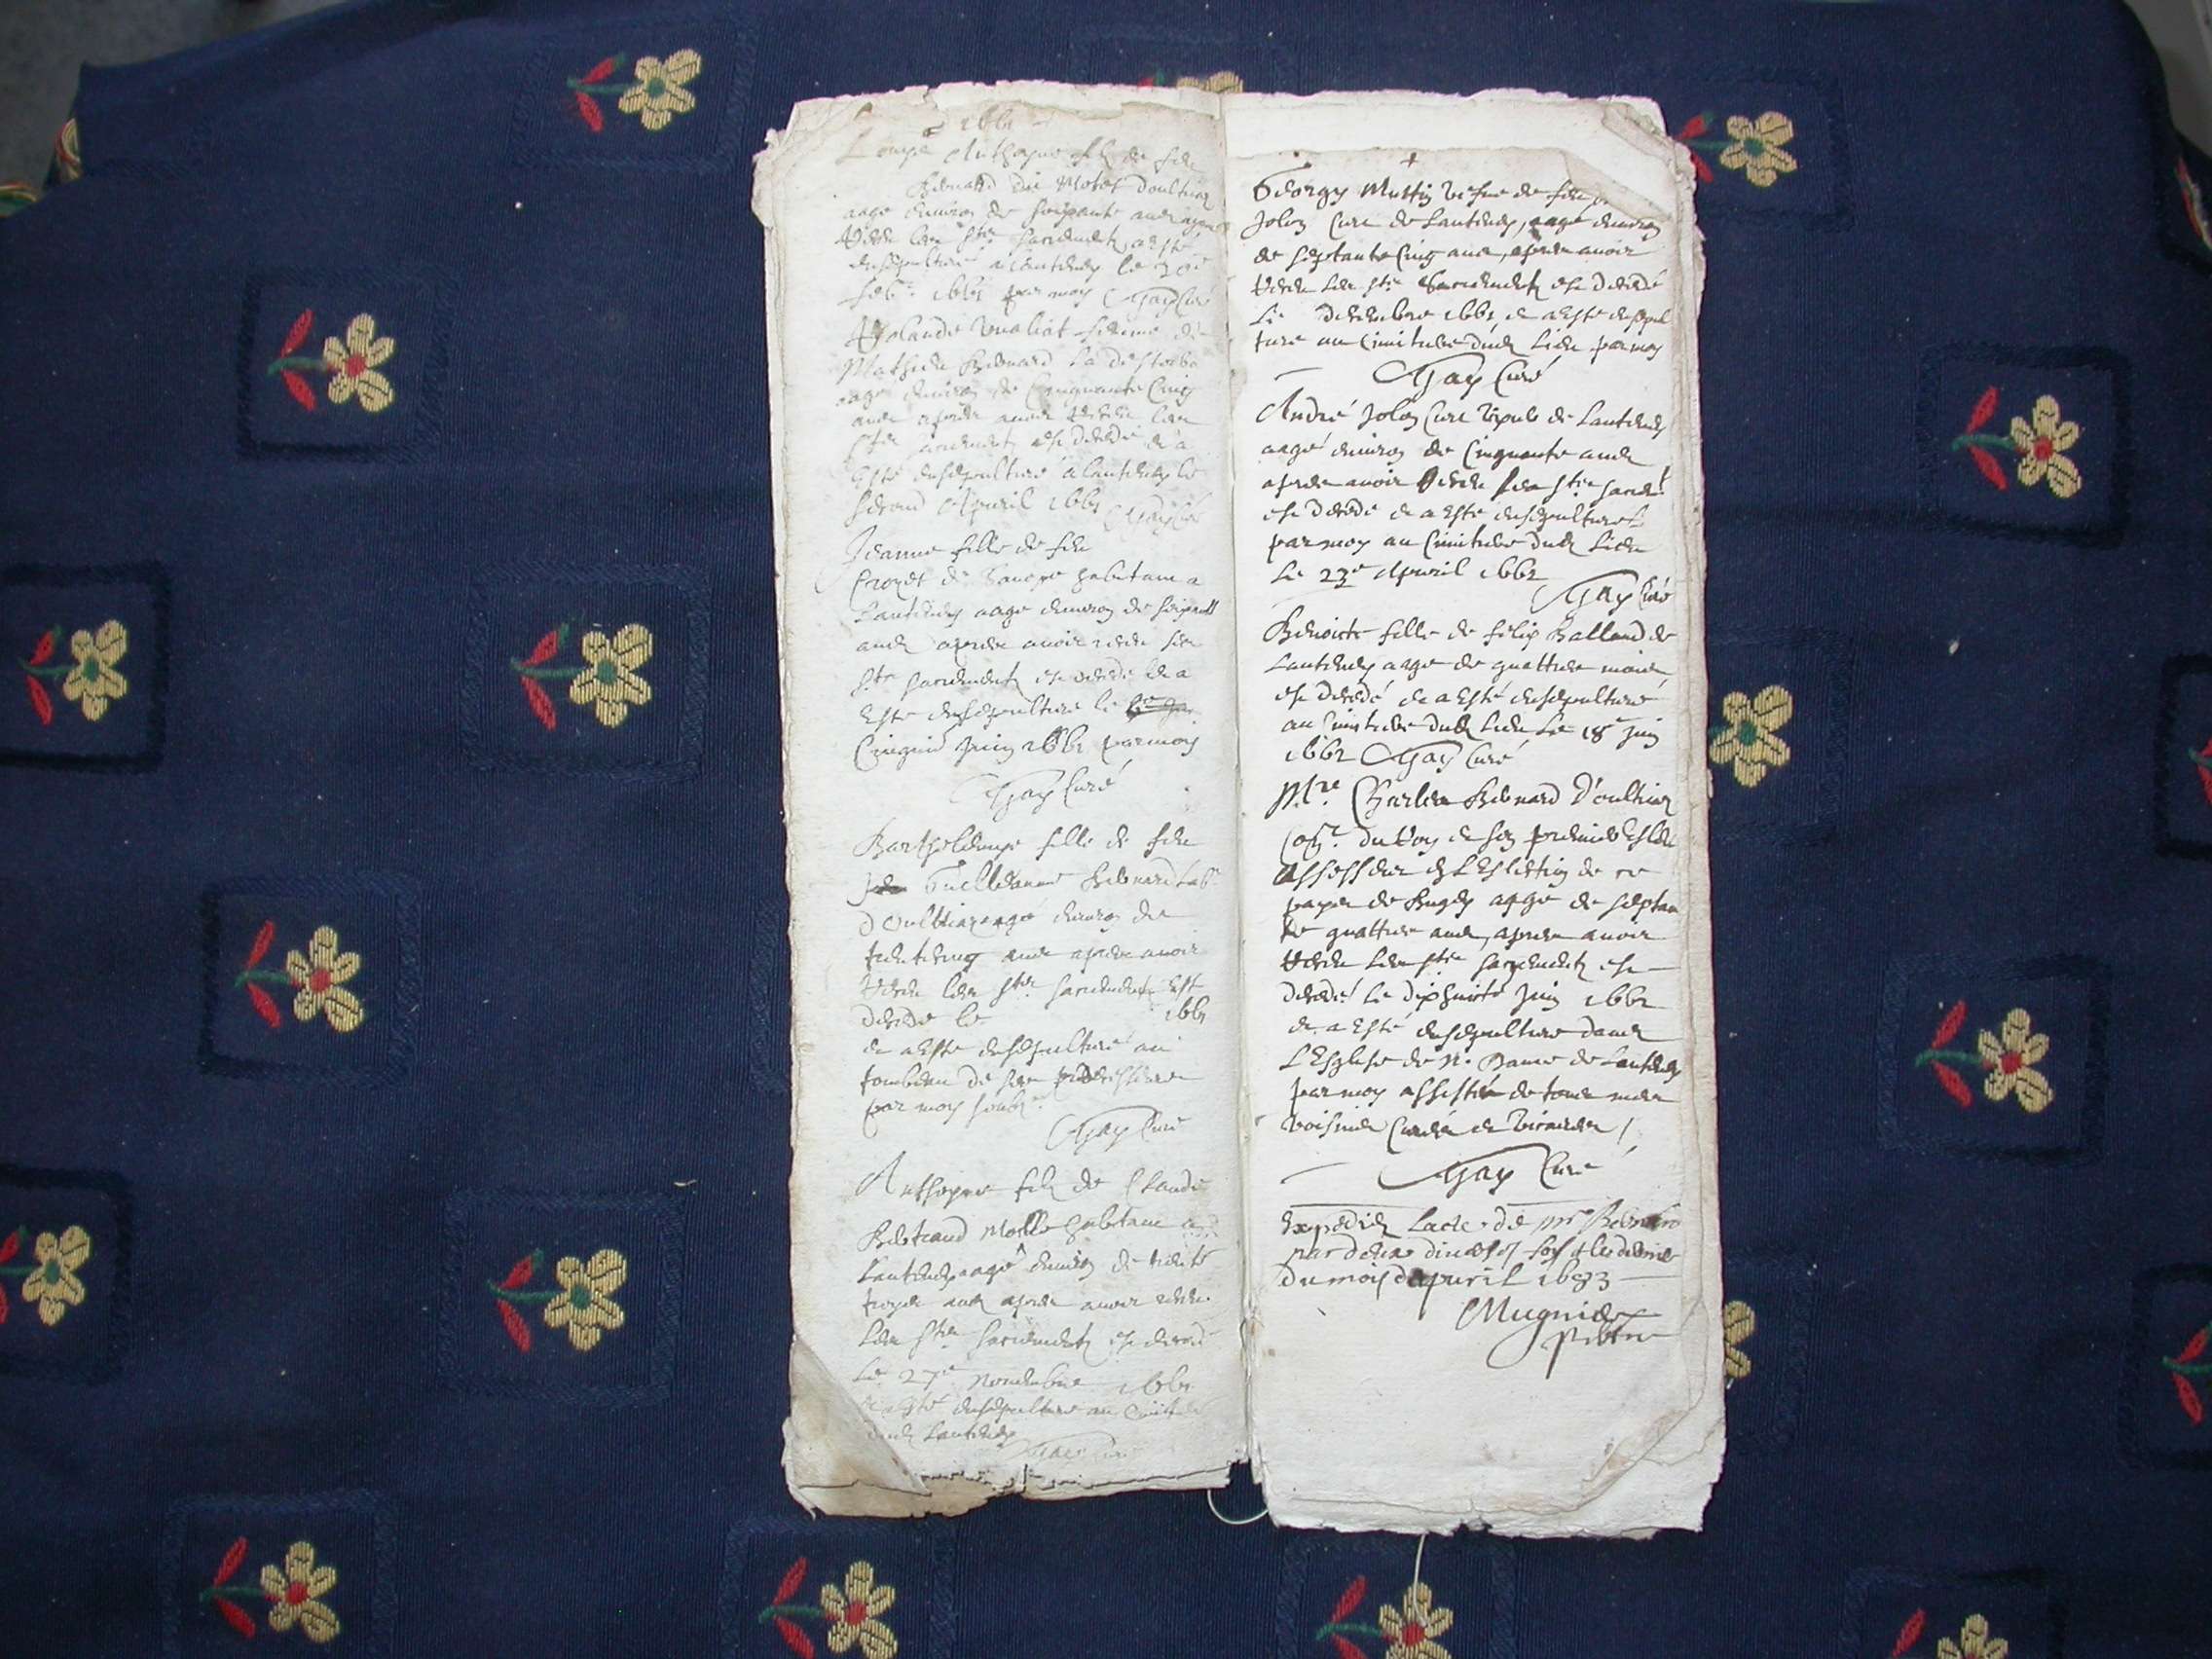 1661
Anthoyne filz de feu
Bernard du Molet doultriaz
aagé environ de soixante ans apres
ste sacrements a esté
ensepulturé a Lantenay le
feb. 1661 par moy Gay Curé
femme de
Mathieu Bernard
aagé environ de Cinquante Cinq
ans apres avoir receu les
stes sacrements est decedé et a
Esté ensepulturé a Lantenay le
second Apvril 1661 Gay Curé
Jeanne fille de feu
Crozet de Savoye habitant a
Lantenay aagé environ de soixante
ans apres avoir receu les
stes sacrements est decedé et a
Esté ensepulturé le
Cinquie Juin 1661 par moy
Gay Curé
Bartholemye fille de feu
Guelleaume Bernard Lab
doultriaz aagé environ de
ans apres avoir
receu les stes sacrements Est
decedé le 1661
et a Esté ensepulturé au
tombeau de ses predecesseurs
par moy soubz
Gay Curé
Anthoyne filz de Claude
Bertrand Molle habitant a
Lantenay aagé environ de trente
troys ans apres avoir receu
Les stes sacrements est decedé
Le 27e Novembre 1661
et a esté ensepulturé au Cimitiere
dud Lantenay
Gay Curé
Georgy Muttin vefve de feu
Jolon Curt de Lantenay, aagé environ
de septante Cinq ans, apres avoir
receu Les stes Sacrements est decedé
Le decembre 1661 et a Esté ensepul
turé au Cimitiere dud Lieu par moy
Gay Curé
André Jolon Curt de Lantenay
aagé environ de Cinquante ans
apres avoir receu Les stes sacrets
est decedé et a Esté ensepulturé
par moy au Cimitiere dud Lieu
Le 23e Apvril 1662
Gay Curé
Benoicte fille de felix Balland de
Lantenay aagé de quattres mois
est decedé et a Esté ensepulturé
au Cimitiere dud Lieu Le 18e Juin
1662 Gay Curé
Mre Charles Bernard D'oultriaz
Coner du Roy et son premier Esleu
Assesseur en L'Eslection de ce
pays de Bugey aagé de septan
te quattres ans, apres avoir
receu Les stes sacrements est
decedé Le dixhuicte Juin 1662
et a Esté ensepulturé dans
L'Esglise de N. Dame de Lantenay
par moy assisté de tous mes
voisins Curés et vicaires /
Gay Curé
Expedié Lacte de Mre Bernard
par deux foys le dernier
du mois dapvril 1693
Mugnier
Pbtre